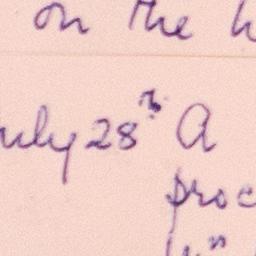 on the h
uly 28th A
proc